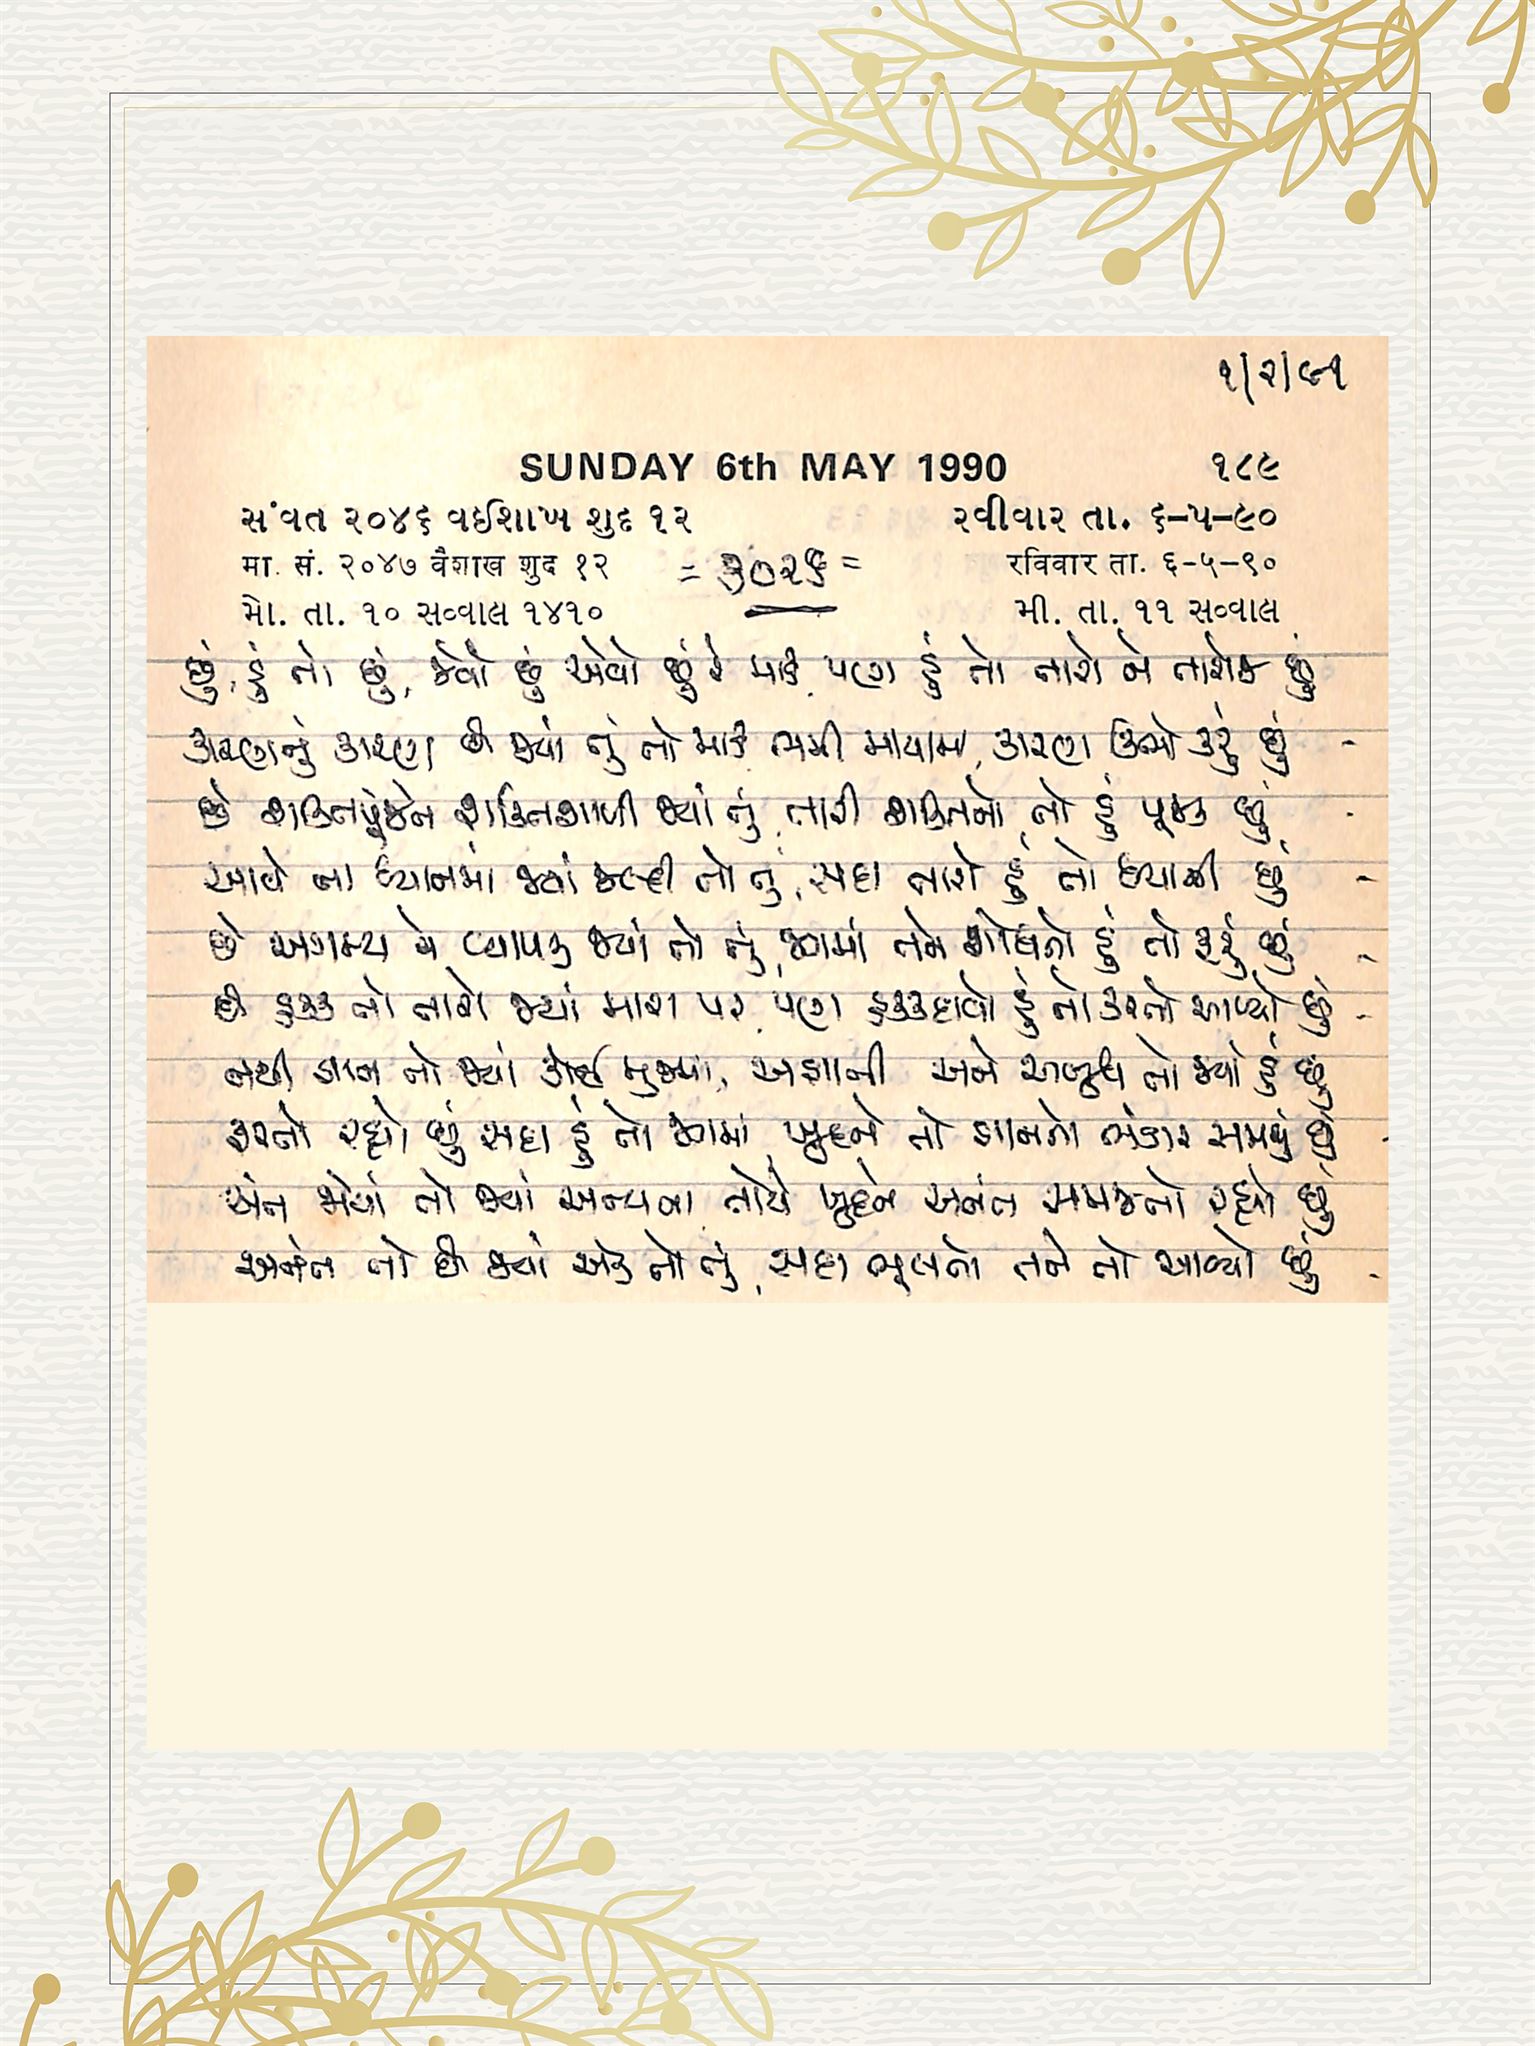 ૧/૨/૯૧
SUNDAY 6th MAY 1990 ૧૮૯
સંવત ૨૦૪૬ વઈશાખ શુદ ૧૨ રવીવાર તા. ૬-૫-૯૦
मा. सं. २०४७ वैशाख शुद १२ = ૩૦૨૬ = रविवार ता. ६-५-९०
મો. તા. ૧૦ સવ્વાલ ૧૪૧૦ મી. તા. ૧૧ સવ્વાલ
છું, હું તો છું, જેવો છું એવો છું રે માડી, પણ હું તો તારો ને તારોજ છું
કારણનું કારણ છે જ્યાં તું તો માડી ભમી માયામાં, કારણ ઊભો કરું છું -
છે શક્તિપૂંજને શક્તિશાળી જ્યાં તું, તારી શક્તિનો તો હું પૂજક છું -
આવે ના ધ્યાનમાં જ્યાં જલ્દી તો તું, સદા તારો હું તો ધ્યાની છું -
છે અગમ્ય ને વ્યાપક જ્યાં તો તું, જગમાં તને શોધતો હું તો ફરું છું -
છે હક્ક તો તારો જ્યાં મારા પર, પણ હક્કદાવો હું તો કરતો આવ્યો છું -
નથી જ્ઞાન તો જ્યાં કોઈ મુજમાં, અજ્ઞાની અને અબુધ તો જ્યાં હું છું
ફરતો રહ્યો છું સદા હું તો જગમાં, ખુદને તો જ્ઞાનનો ભંડાર સમજું છું -
અંત જોયાં તો જ્યાં અન્યના તોયે ખુદને અનંત સમજતો રહ્યો છું
અનંત તો છે જ્યાં એક તો તું, સદા ભૂલતો તને તો આવ્યો છું -